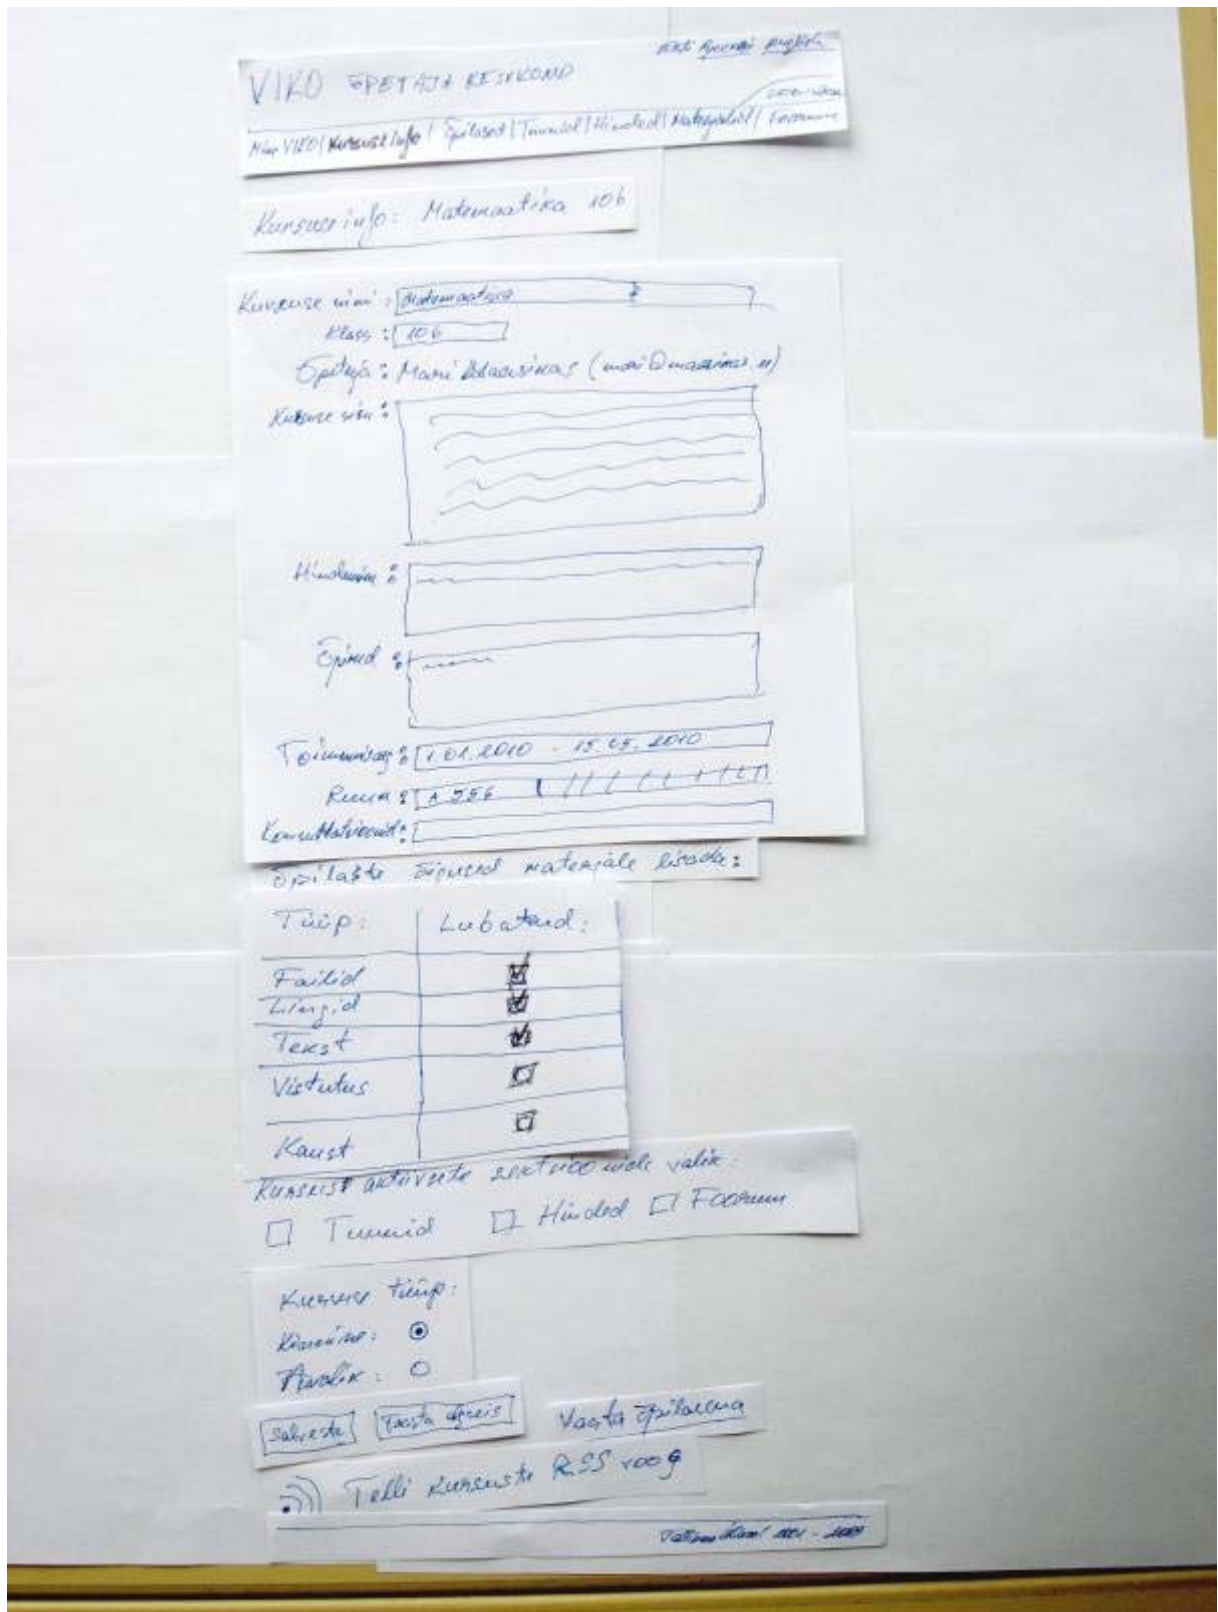 Eesti Русский English
VIKO ÕPETAJA KESKKOND
Minu VIKO | Kursuse info | Õpilased | Tunnid | Hinded | Materjalid | Foorum
Kursuse info: Matemaatika 10b
Kursuse nimi: Matemaatika
Klass: 10b
Õpetaja: Mari
Kursuse sisu:
Hindamine:
Õpikud:
Toimumisaeg: 1.01.2010 - 15.05.2010
Ruum: A 556
Konsultatsioonid:
Õpilaste õigused materjale lisada:
Tüüp: Lubatud:
Failid
Lingid
Tekst
Vistutus
Kaust
Kursuse aktiivsete sektsioonide valik:
Tunnid Hinded Foorum
Kursuse tüüp:
Kinnine:
Avalik:
Salvesta Taasta algseis Vaata õpilasena
Telli kursuste RSS voog